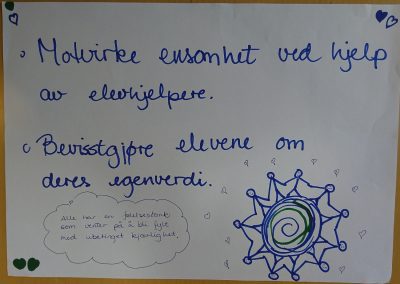 Motvirke ensomhet ved hjelp
av elevhjelpere.
Bevisstgjøre elevene om
deres egenverdi.
Alle har en følelsestank
som venter på å bli fylt
med ubetinget kjærlighet.